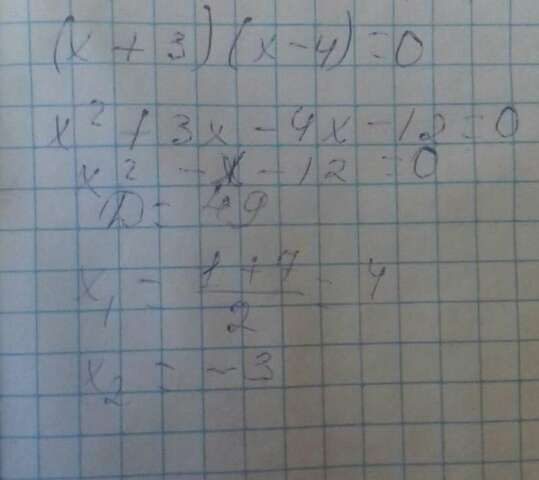 (x + 3)(x - 4) = 0
x² + 3x - 4x - 12 = 0
x² - x - 12 = 0
D = 49
x₁ = (1 + 7)/2 = 4
x₂ = -3